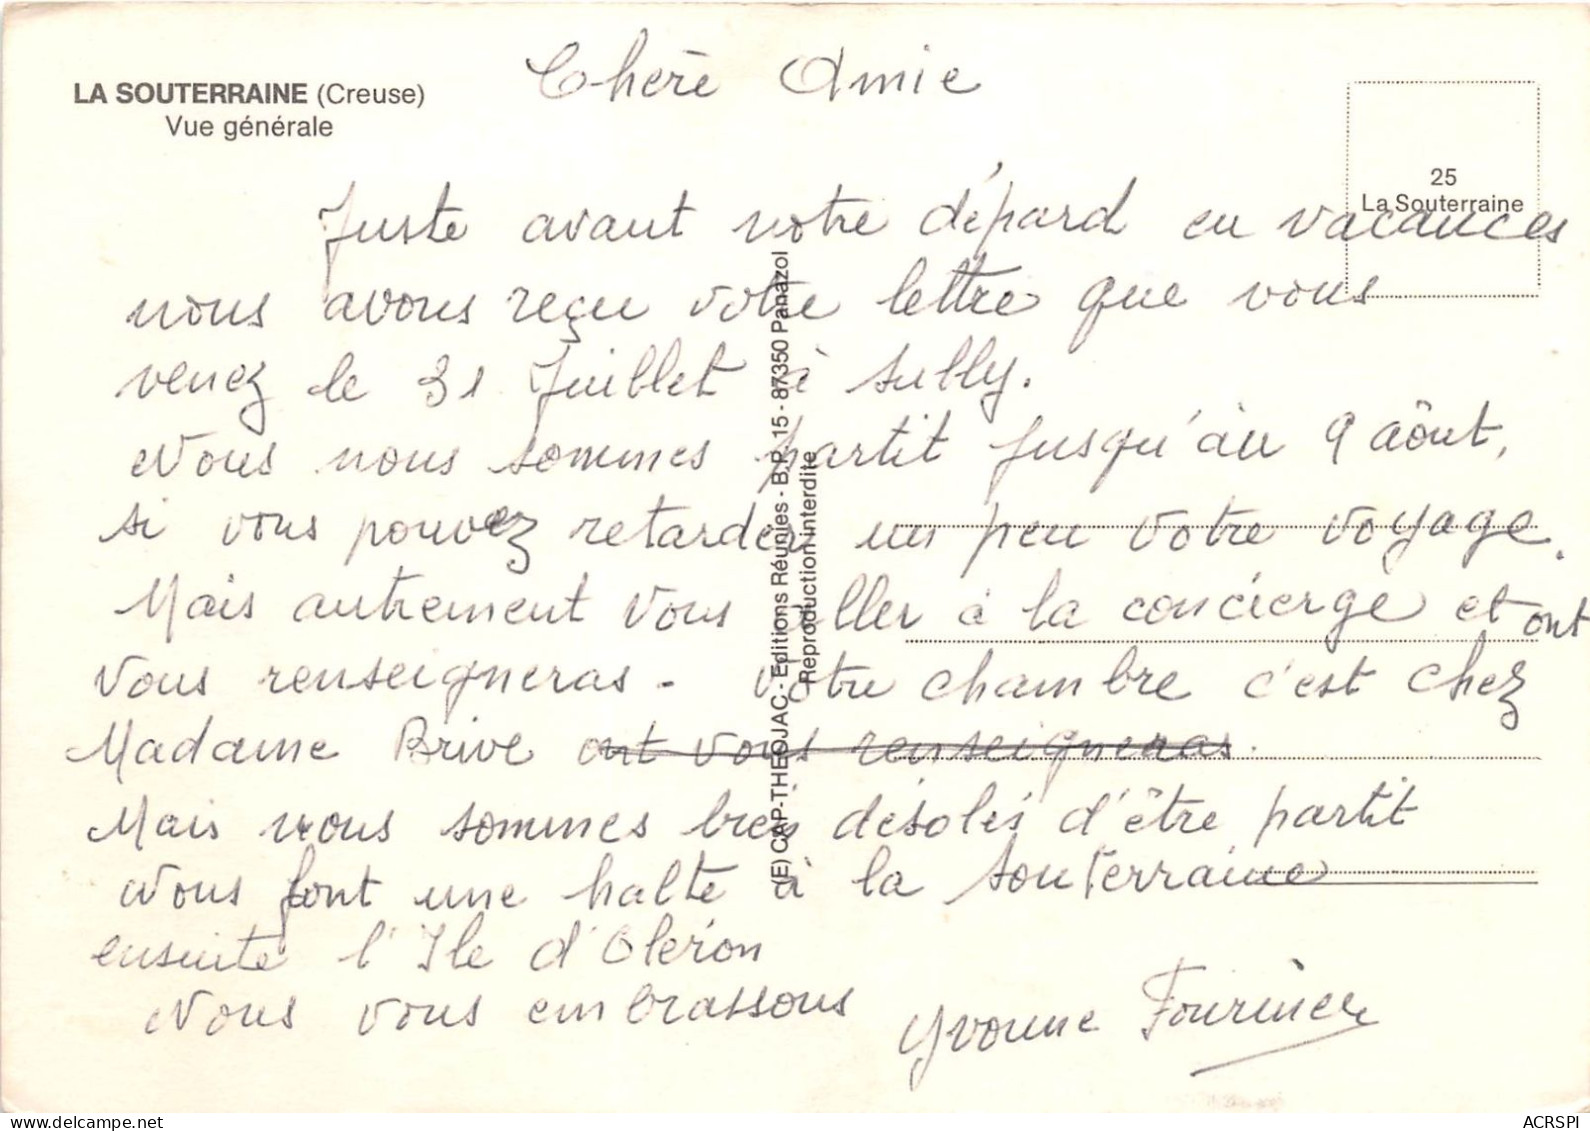 LA SOUTERRAINE (Creuse)
Vue générale
Chère Amie
25
La Souterraine
Juste avant notre dépard en vacances
nous avons reçu votre lettre que vous
venez le 31 Juillet à Sully.
Nous nous sommes partit jusqu'àu 9 aôut,
si vous pouvez retarder un peu votre voyage.
Mais autrement vous aller à la concierge et ont
vous renseigneras - votre chambre c'est chez
Madame Brive ont vous renseigneras.
Mais nous sommes bien désolés d'être partit
Nous font une halte à la souterraine
ensuite l'Ile d'Oléron
Nous vous embrassons
Yvonne Fournier
(E) CAP-THEOJAC - Editions Réunies - B.P. 15 - 87350 Panazol
Reproduction interdite
ACRSPI